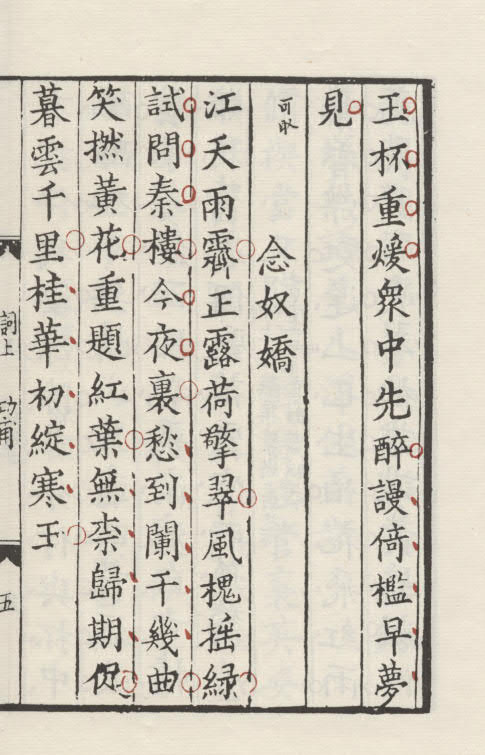 玉杯重煖衆中先醉謾倚檻早夢
見
可取
念奴嬌
江天雨霽正露荷擎翠風槐揺緑
試問秦樓今夜裏愁到闌干幾曲
笑撚黃花重題紅葉無柰歸期促
暮雲千里桂華初綻寒玉
詞上
五